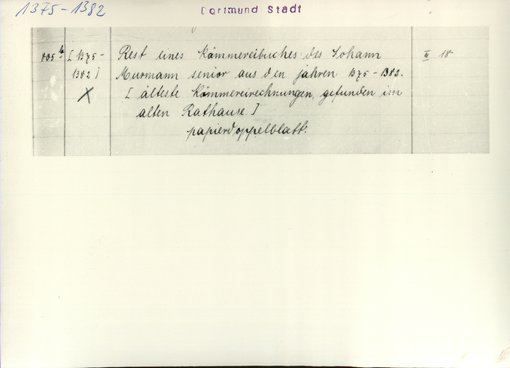 1375-1382
Dortmund Stadt
1005 b [1375- Rest eines Kämmereibuches des Johann II 18
1382] Murmann senior aus den Jahren 1375-1382.
X [älteste Kämmereirechnungen, gefunden im
alten Rathause.]
Papierdoppelblatt.